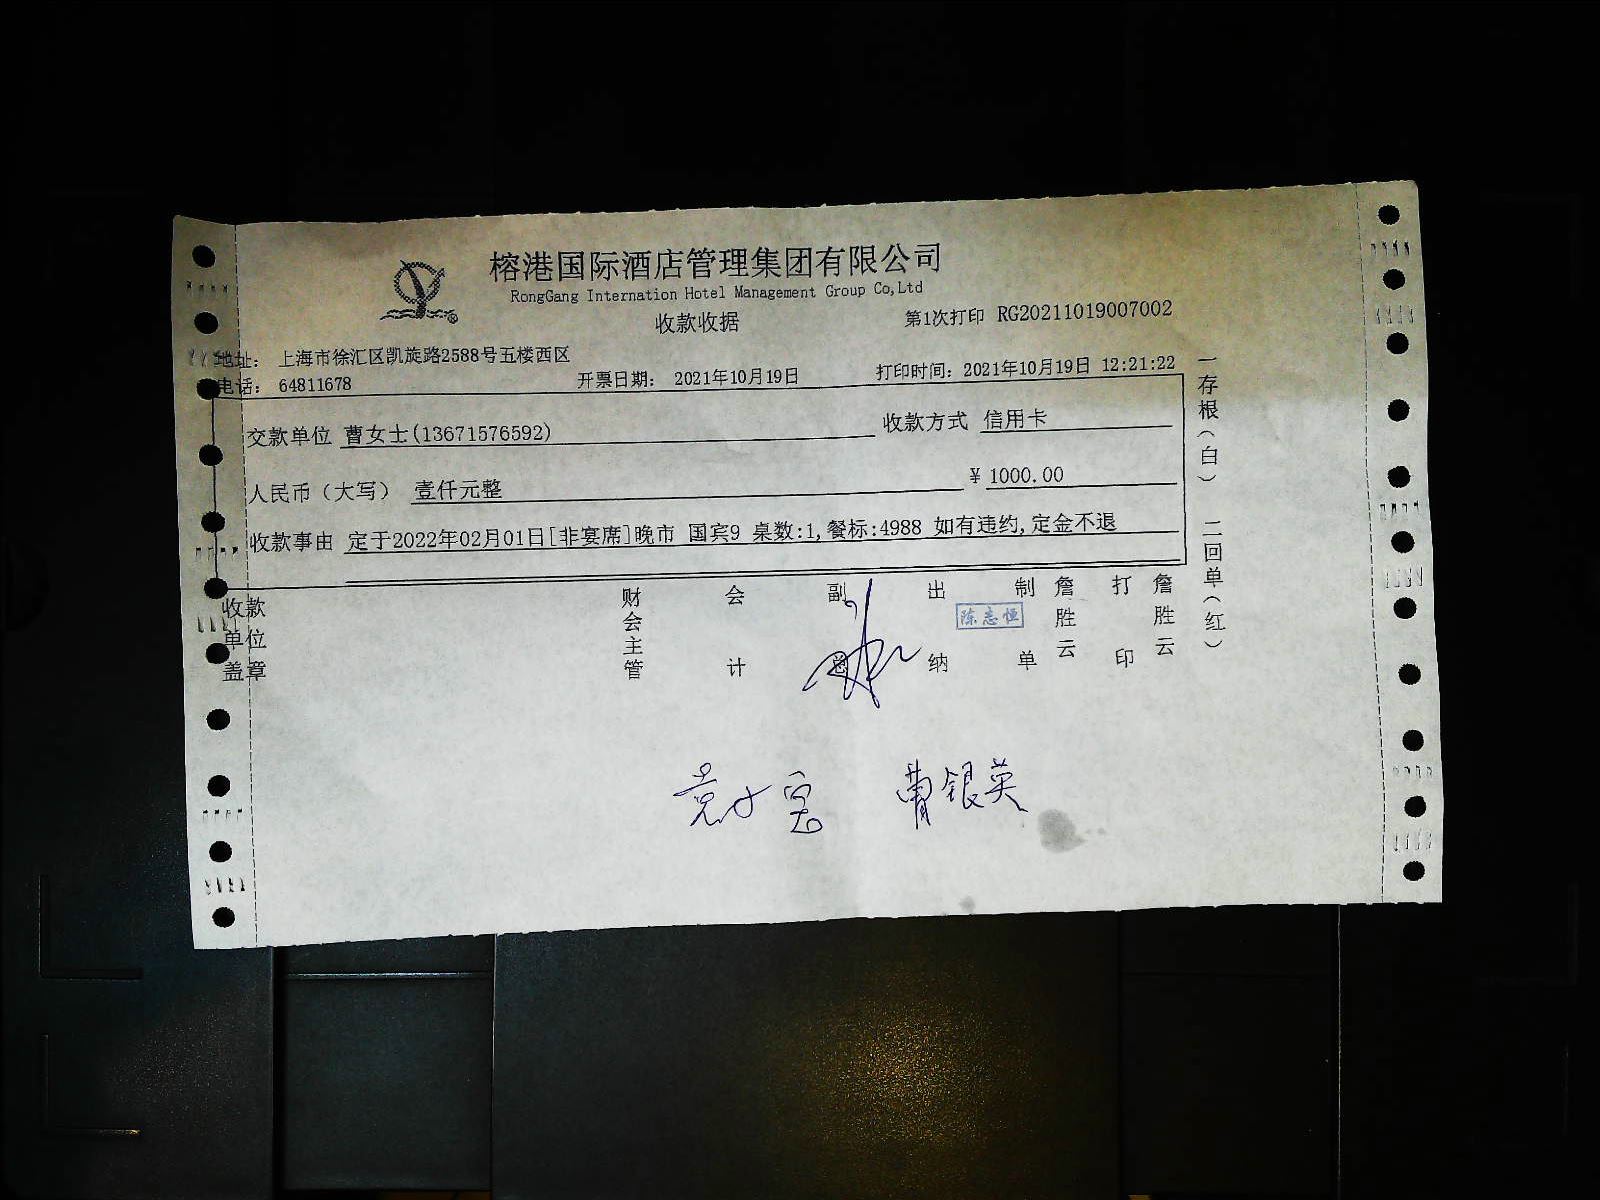 榕港国际酒店管理集团有限公司
RongGang Internation Hotel Management Group Co,Ltd
收款收据
第1次打印 RG20211019007002
地址： 上海市徐汇区凯旋路2588号五楼西区
电话： 64811678
开票日期： 2021年10月19日
打印时间：2021年10月19日 12:21:22
交款单位 曹女士(13671576592)
收款方式 信用卡
人民币（大写） 壹仟元整
¥ 1000.00
收款事由 定于2022年02月01日[非宴席]晚市 国宾9 桌数:1,餐标:4988 如有违约,定金不退
收款单位盖章
财会主管
会计
副总
出纳
陈志恒
制单
詹胜云
打印
詹胜云
一存根（白） 二回单（红）
曹银英